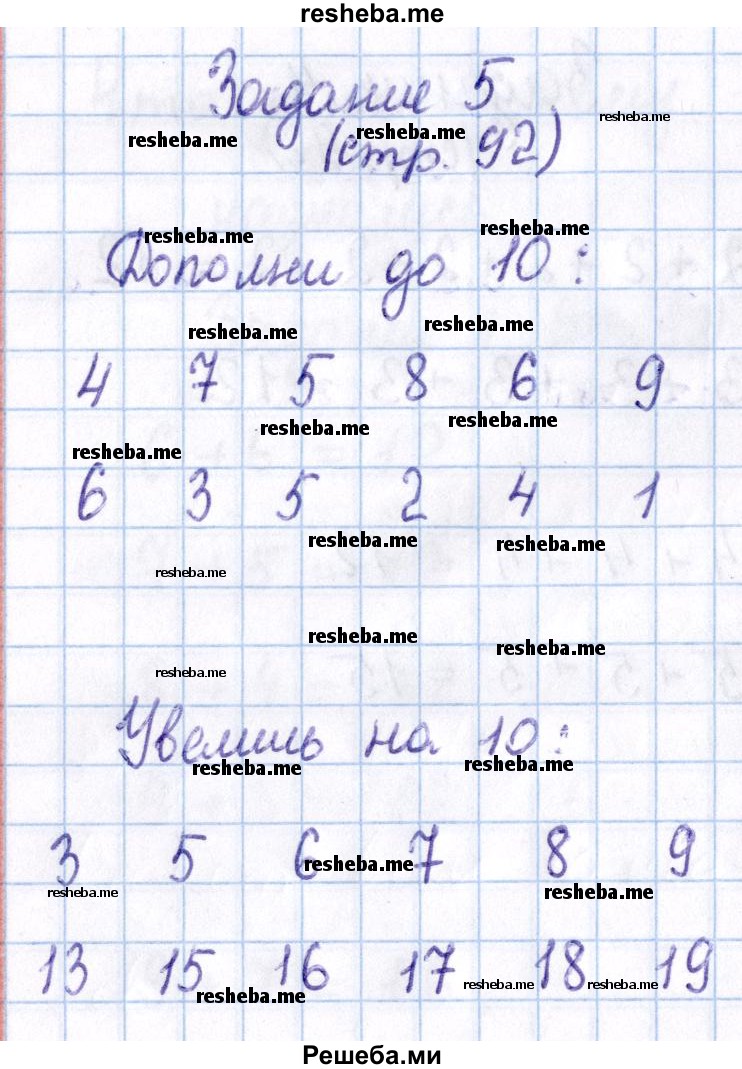 resheba.me
Задание 5
resheba.me
resheba.me resheba.me
(стр. 92)
resheba.me resheba.me
Дополни до 10:
resheba.me resheba.me
4 7 5 8 6 9
resheba.me resheba.me
resheba.me
6 3 5 2 4 1
resheba.me resheba.me
resheba.me
resheba.me resheba.me
resheba.me
Увеличь на 10:
resheba.me resheba.me
3 5 6 7 8 9
resheba.me
resheba.me resheba.me
13 15 16 17 18 19
resheba.me resheba.me
resheba.me
Решеба.ми